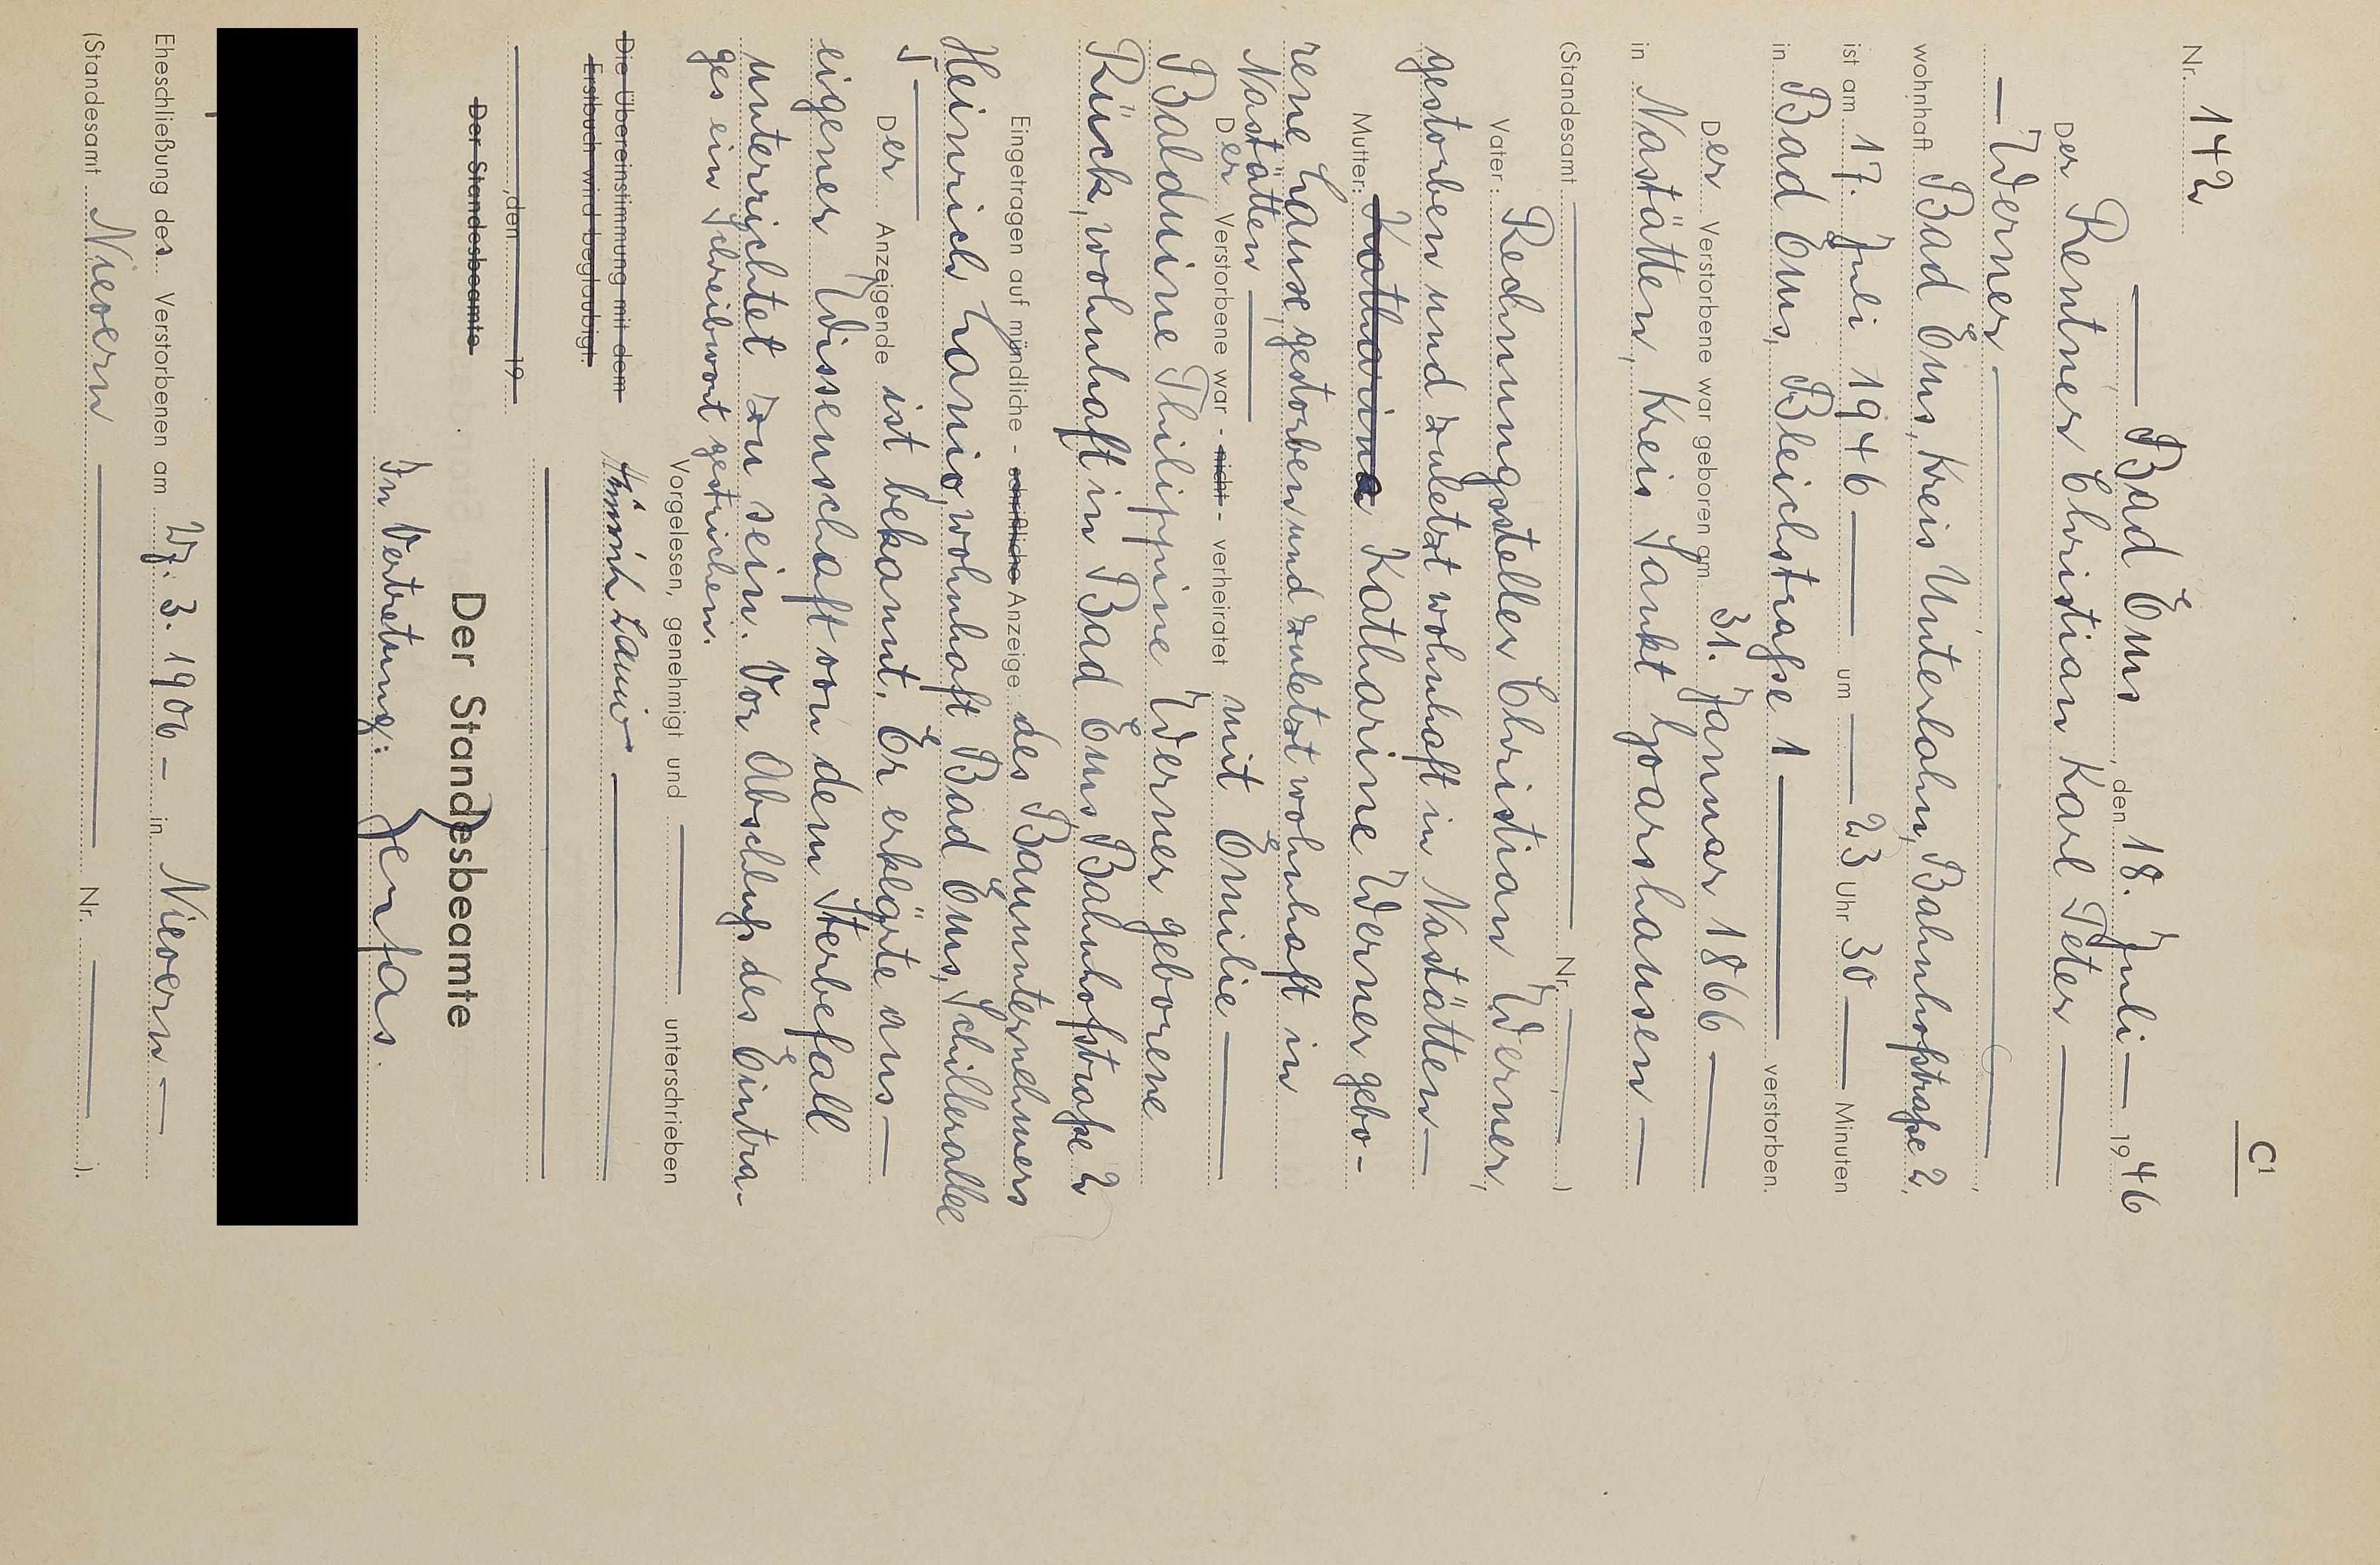 C1
Nr. 142
Bad Ems, den 18. Juli 1946
Der Rentner Christian Karl Peter
Werner,
wohnhaft Bad Ems, Kreis Unterlahn, Bahnhofstraße 2,
ist am 17. Juli 1946 um 23 Uhr 30 Minuten
in Bad Ems, Bleichstraße 1 verstorben.
Der Verstorbene war geboren am 31. Januar 1866
in Nastätten, Kreis Sankt Goarshausen
(Standesamt Nr. )
Vater: Rechnungssteller Christian Werner,
gestorben und zuletzt wohnhaft in Nastätten
Mutter: Katharina Katharine Werner gebo-
rene Lause, gestorben und zuletzt wohnhaft in
Nastätten
Der Verstorbene war - nicht - verheiratet mit Emilie
Balduine Philippine Werner geborene
Rück, wohnhaft in Bad Ems Bahnhofstraße 2
Eingetragen auf mündliche - schriftliche Anzeige des Bauunternehmers
Heinrich Lanio, wohnhaft Bad Ems, Schillerallee
5
Der Anzeigende ist bekannt. Er erklärte aus
eigener Wissenschaft von dem Sterbefall
unterrichtet zu sein. Vor Abschluß des Eintra-
ges ein Schreibwort gestrichen.
Vorgelesen, genehmigt und unterschrieben
Die Übereinstimmung mit dem
Erstbuch wird beglaubigt.
Heinrich Lanio
, den 19
Der Standesbeamte
Der Standesbeamte
In Vertretung:
Eheschließung des Verstorbenen am 27. 3. 1906 in Nievern
(Standesamt Nievern Nr. ).